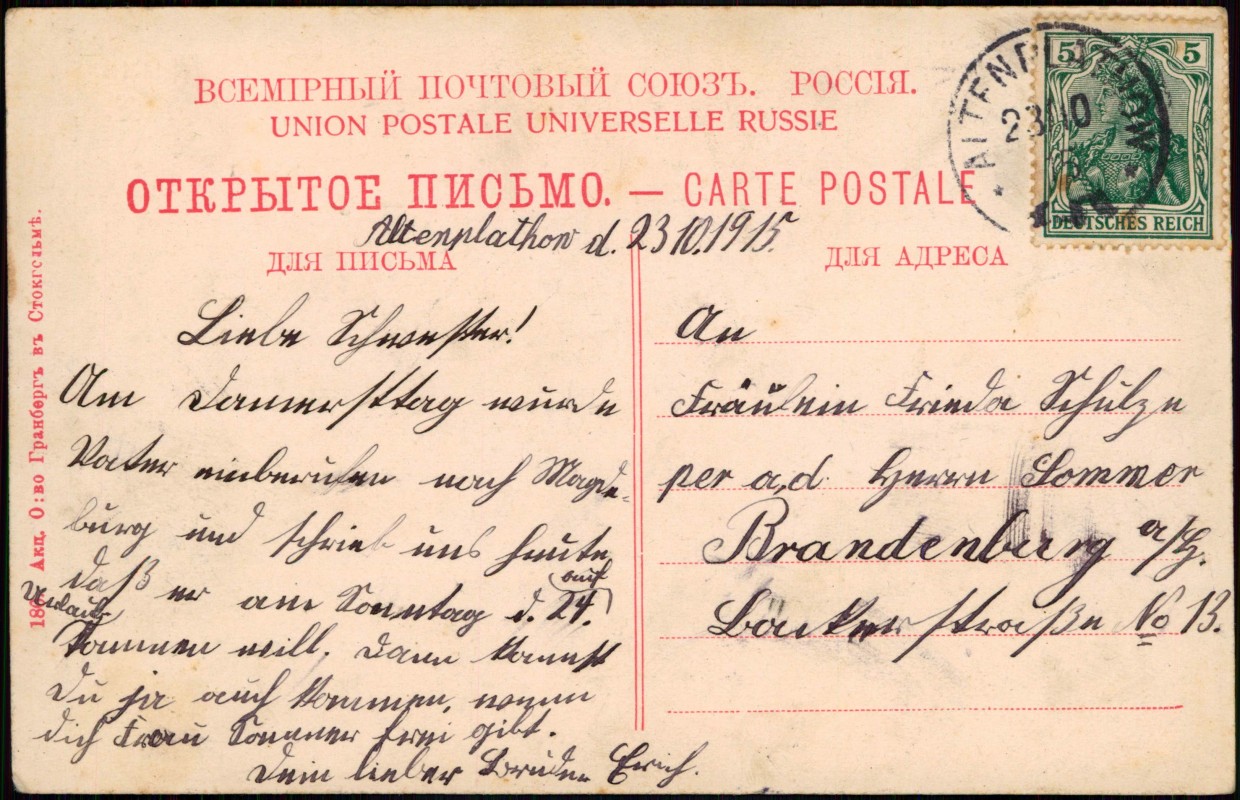 ВСЕМІРНЫЙ ПОЧТОВЫЙ СОЮЗЪ. РОССІЯ.
UNION POSTALE UNIVERSELLE RUSSIE
ОТКРЫТОЕ ПИСЬМО. — CARTE POSTALE
Altenplathow d. 23.10.1915.
ДЛЯ ПИСЬМА
ДЛЯ АДРЕСА
Liebe Schwester!
Am Donnersttag wurde
Vater einberufen nach Magde-
burg und schrieb uns heute,
daß er am Sonntag d. 24. auf
Urlaub
kommen will. Dann kannst
Du ja auch kommen, wenn
dich Frau Sommer frei gibt.
Dein lieber Bruder Erich.
An
Fräulein Frieda Schulze
per ad. Herrn Sommer
Brandenburg a/H.
Bäckerstraße No 13.
Акц. О:во Гранбергъ въ Стокгольмѣ.
5 5
DEUTSCHES REICH
ALTENPLATHOW
23 10